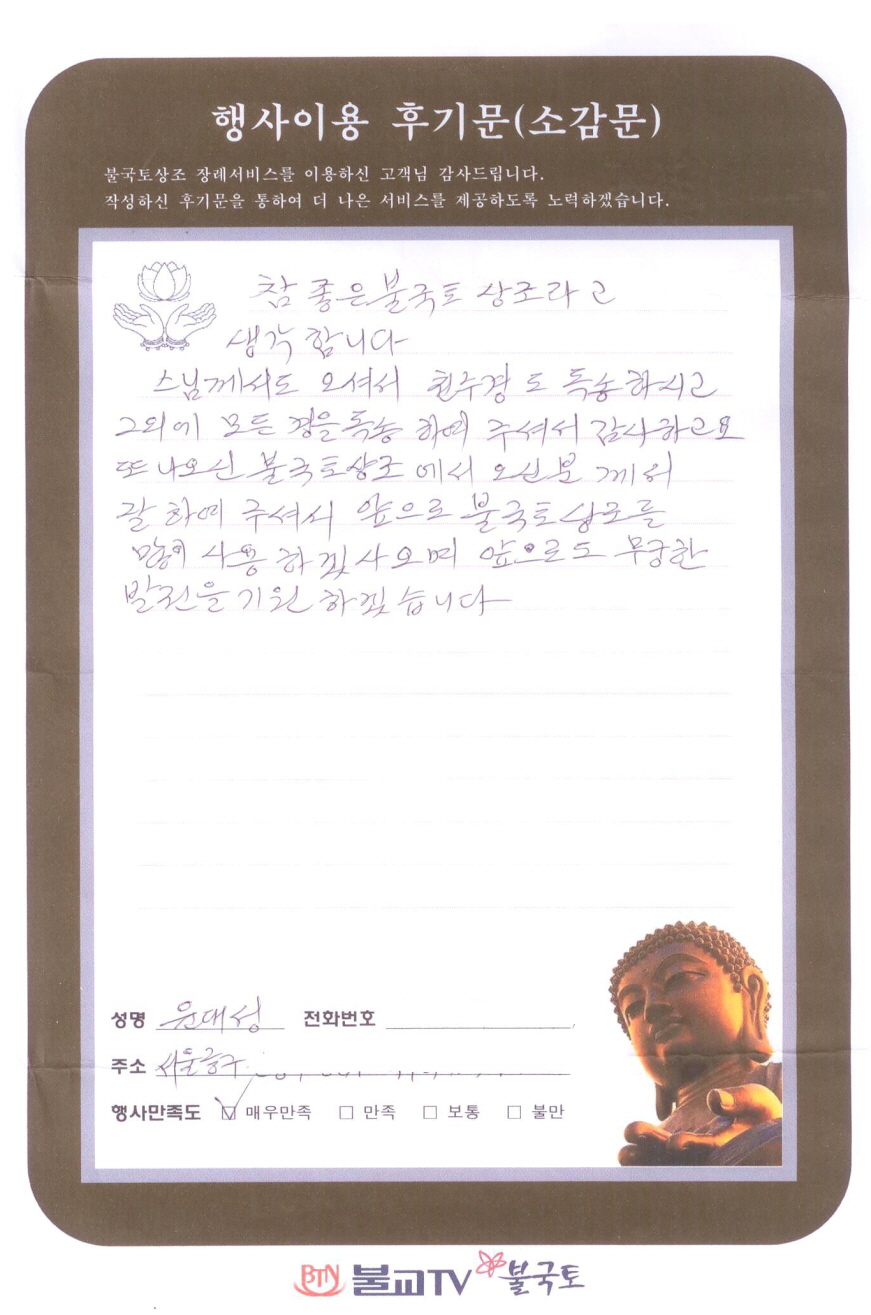 행사이용 후기문(소감문)
불국토상조 장례서비스를 이용하신 고객님 감사드립니다.
작성하신 후기문을 통하여 더 나은 서비스를 제공하도록 노력하겠습니다.
참 좋은 불국토 상조라고
생각 합니다
스님께서도 오셔서 천수경도 독송하시고
그외에 모든 경을 독송 하여 주셔서 감사하고요
또 나오신 불국토상조에서 오신분 께서
잘 하여 주셔서 앞으로 불국토상조를
많이 사용 하겠사오며 앞으로도 무궁한
발전을 기원 하겠습니다
성명 윤대성 전화번호
주소 서울중구
행사만족도 ☑ 매우만족 □ 만족 □ 보통 □ 불만
BTN 불교TV 불국토